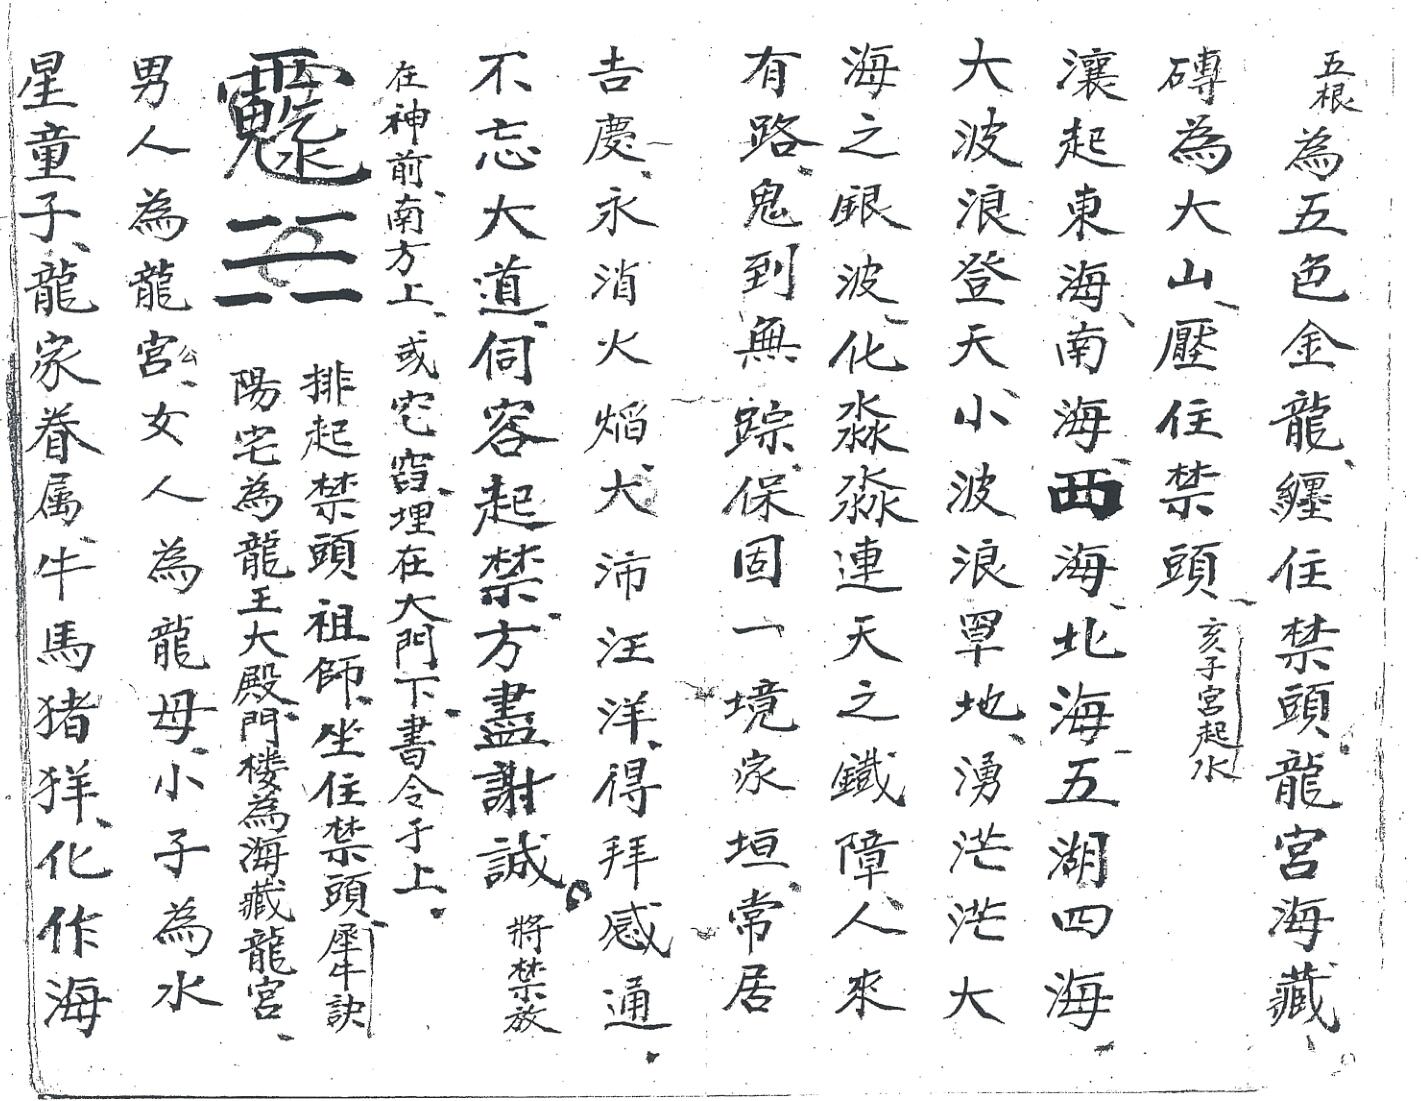 五根為五色金龍、纏住禁頭、龍宮海藏、
磚為大山、壓住禁頭、亥子宮起水
瀼起東海、南海、西海、北海、五湖四海、
大波浪登天、小波浪罩地、湧茫茫大
海之銀波、化淼淼連天之鐵障、人來
有路、鬼到無踪、保固一境家垣、常居
吉慶、永消火焰、大沛汪洋、得拜感通、
不忘大道、伺容起禁、方盡謝誠。將禁放
在神前、南方上、或宅窟、埋在大門下、書令于上、
排起禁頭祖師、坐住禁頭、犀牛訣
陽宅為龍王大殿、門楼為海藏龍宮、
男人為龍宮公、女人為龍母、小子為水
星童子、龍家眷属、牛馬猪羊、化作海